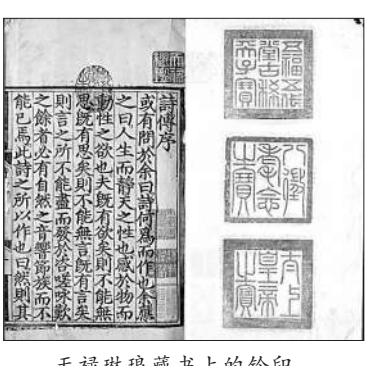 五福五
代堂古稀
天子寶
八徵
耄念
之寶
太上
皇帝
之寶
詩傳序
或有問於余曰詩何爲而作也余應
之曰人生而靜天之性也感於物而
動性之欲也夫既有欲矣則不能無
思既有思矣則不能無言既有言矣
則言之所不能盡而發於咨嗟咏歎
之餘者必有自然之音響節族而不
能已焉此詩之所以作也曰然則其
天禄琳琅藏书上的钤印